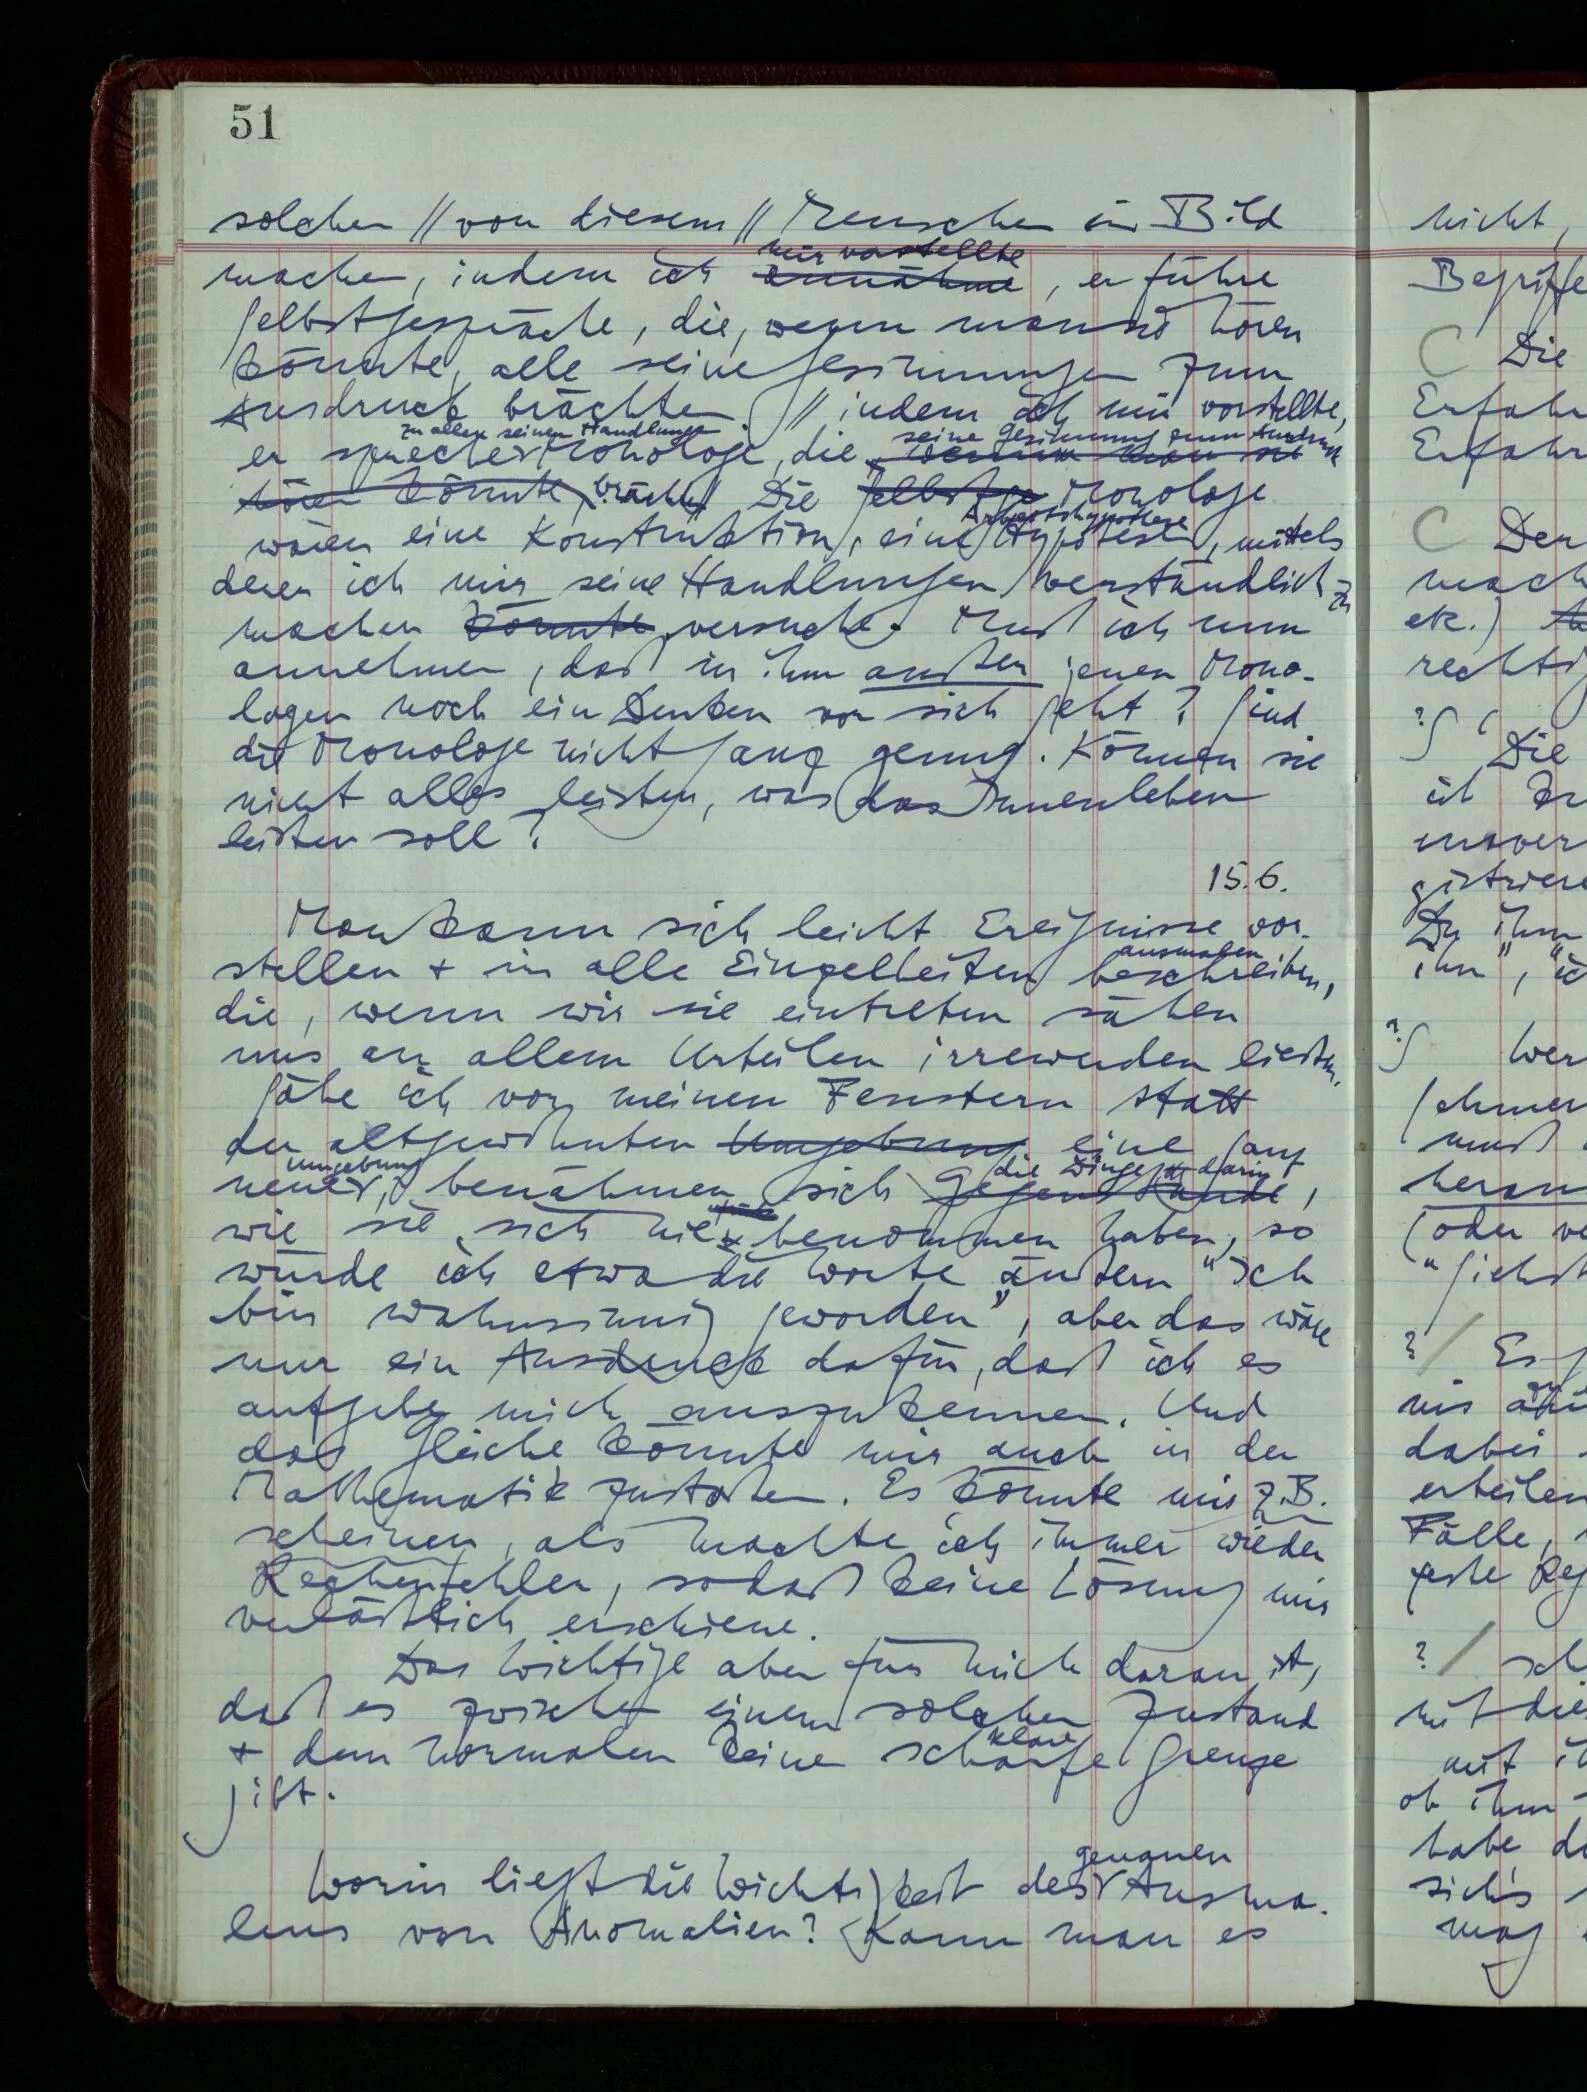 51
solchen // von diesem // Menschen ein Bild
machen, indem ich annähme mir vorstellte, er führe
Selbstgespräche, die, wenn man sie hören
könnte, alle seine Gesinnungen zum
Ausdruck brächten. // indem ich mir vorstellte,
er spreche zu allen seinen Handlungen Monologe, die wenn man sie seine Gesinnung zum Ausdruck
hören könnte, brächten. Die Selbstge Monologe
wären eine Konstruktion, eine Hypothese Arbeitshypothese, mittels
deren ich mir seine Handlungen verständlich zu
machen könnte versuche. Muß ich nun
annehmen, daß in ihm außer jenen Mono-
logen noch ein Denken vor sich geht? Sind
die Monologe nicht ganz genug. Können sie
nicht alles leisten, was das Innenleben
leisten soll?
15.6.
Man kann sich leicht Ereignisse vor-
stellen & in alle Einzelheiten beschreiben ausmalen,
die, wenn wir sie eintreten sähen
uns an allem Urteilen irrewerden ließen.
Sähe ich vor meinen Fenstern statt
der altgewohnten Umgebung eine ganz
neue Umgebung, benähmen sich Gegenstände die Dinge darin,
wie sie sich nie benommen haben, so
würde ich etwa die Worte äußern "Ich
bin wahnsinnig geworden", aber das wäre
nur ein Ausdruck dafür, daß ich es
aufgebe mich auszukennen. Und
das gleiche könnte mir auch in der
Mathematik zustoßen. Es könnte mir z.B.
scheinen, als machte ich immer wieder
Rechenfehler, sodaß keine Lösung mir
verläßlich erschiene.
Das Wichtige aber für mich daran ist,
daß es zwischen einem solchen Zustand
& dem normalen keine scharfe klare Grenze
gibt.
Worin liegt die Wichtigkeit des genauen Ausma-
lens von Anomalien? Kann man es
nicht,
Begriffe
C Die
C Den
etc.)
Die
Fälle,
(oder